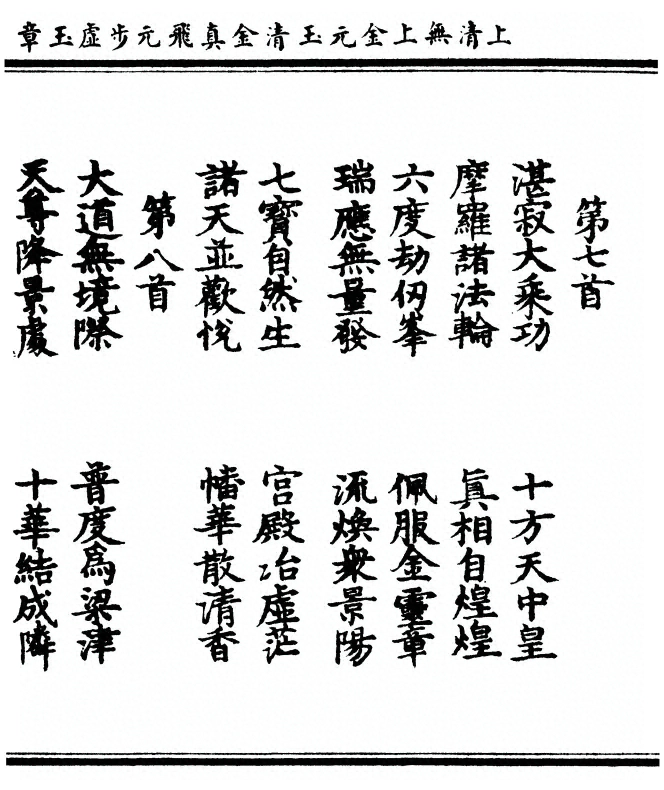 上清無上金元玉清金真飛元步虛玉章
第七首
湛寂大乘功 十方天中皇
摩羅諸法輪 眞相自煌煌
六度劫仞峯 佩服金靈章
瑞應無量發 流煥衆景陽
七寶自然生 宮殿冶虛茫
諸天並歡悅 幡華散清香
第八首
大道無境際 普度爲梁津
天尊降景處 十華結成隣